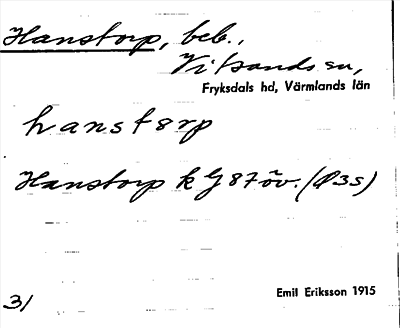 Hanstorp, beb.,
Vitsands sn,
Fryksdals hd, Värmlands län
hanstorp
Hanstorp k GJ 87 öv. (Ø3S)
Emil Eriksson 1915
31